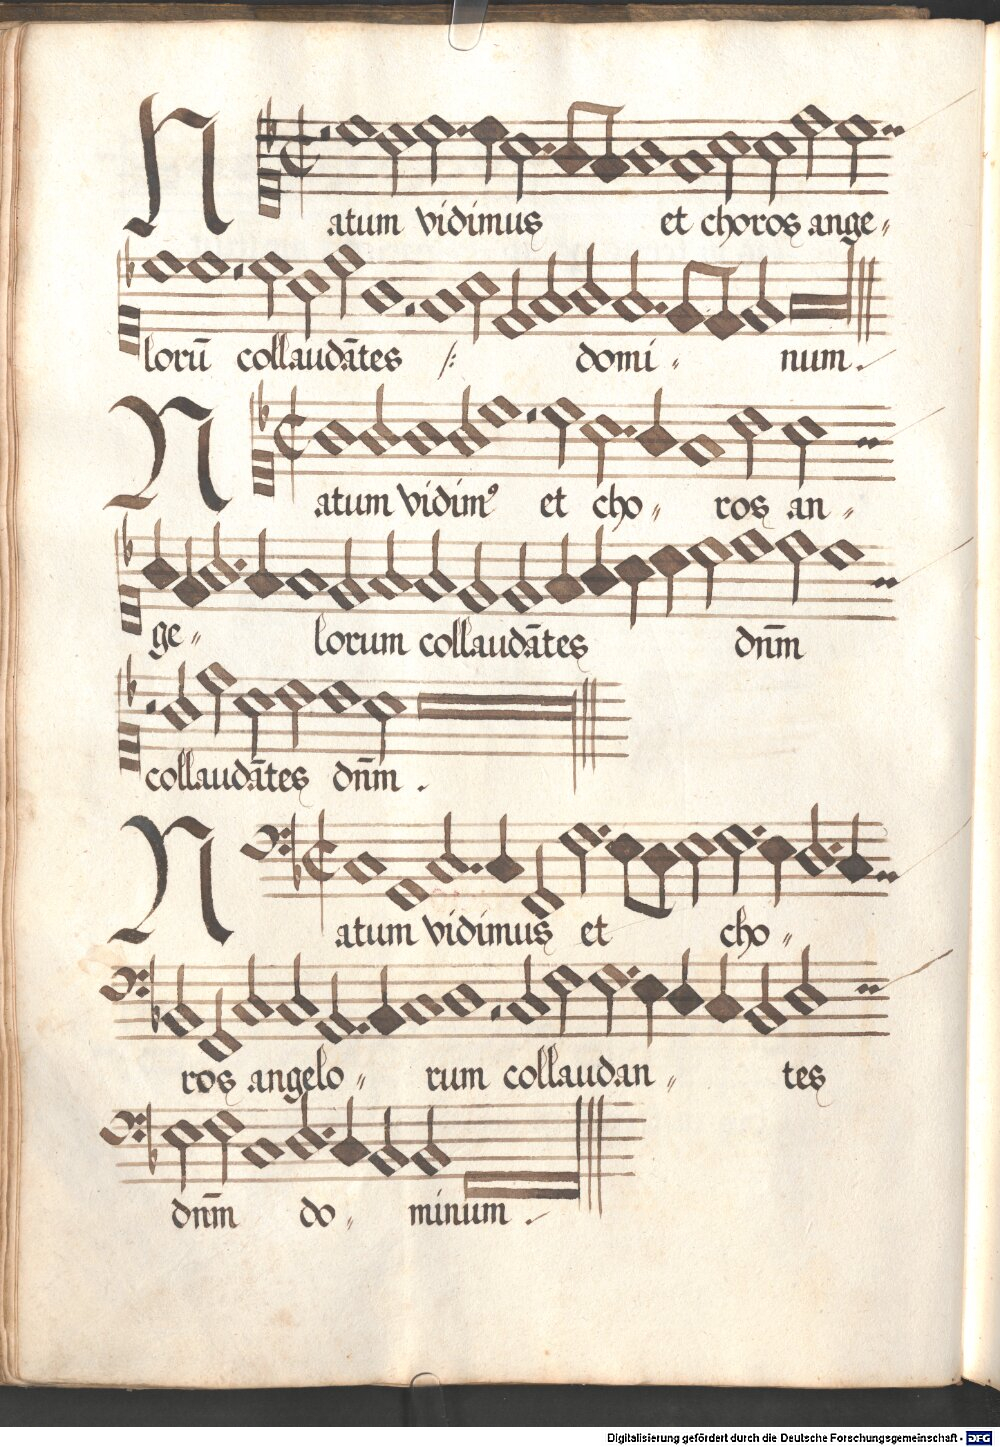 Natum vidimus et choros ange〃
lorū collaudātes :/: domi〃 num.
Natum vidimꝰ et cho〃 ros an〃
ge〃 lorum collaudātes dn̄m
collaudātes dn̄m.
Natum vidimus et cho〃
ros angelo〃 rum collaudan〃 tes
dn̄m do〃 minum.
Digitalisierung gefördert durch die Deutsche Forschungsgemeinschaft - DFG